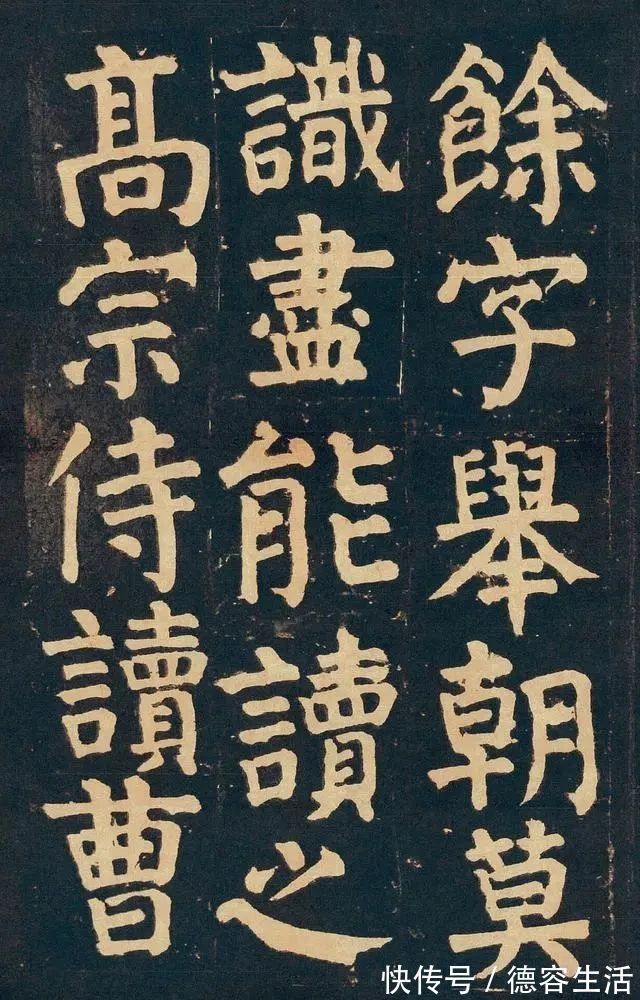 餘字舉朝莫
識盡能讀之
高宗侍讀曹
快传号/德容生活